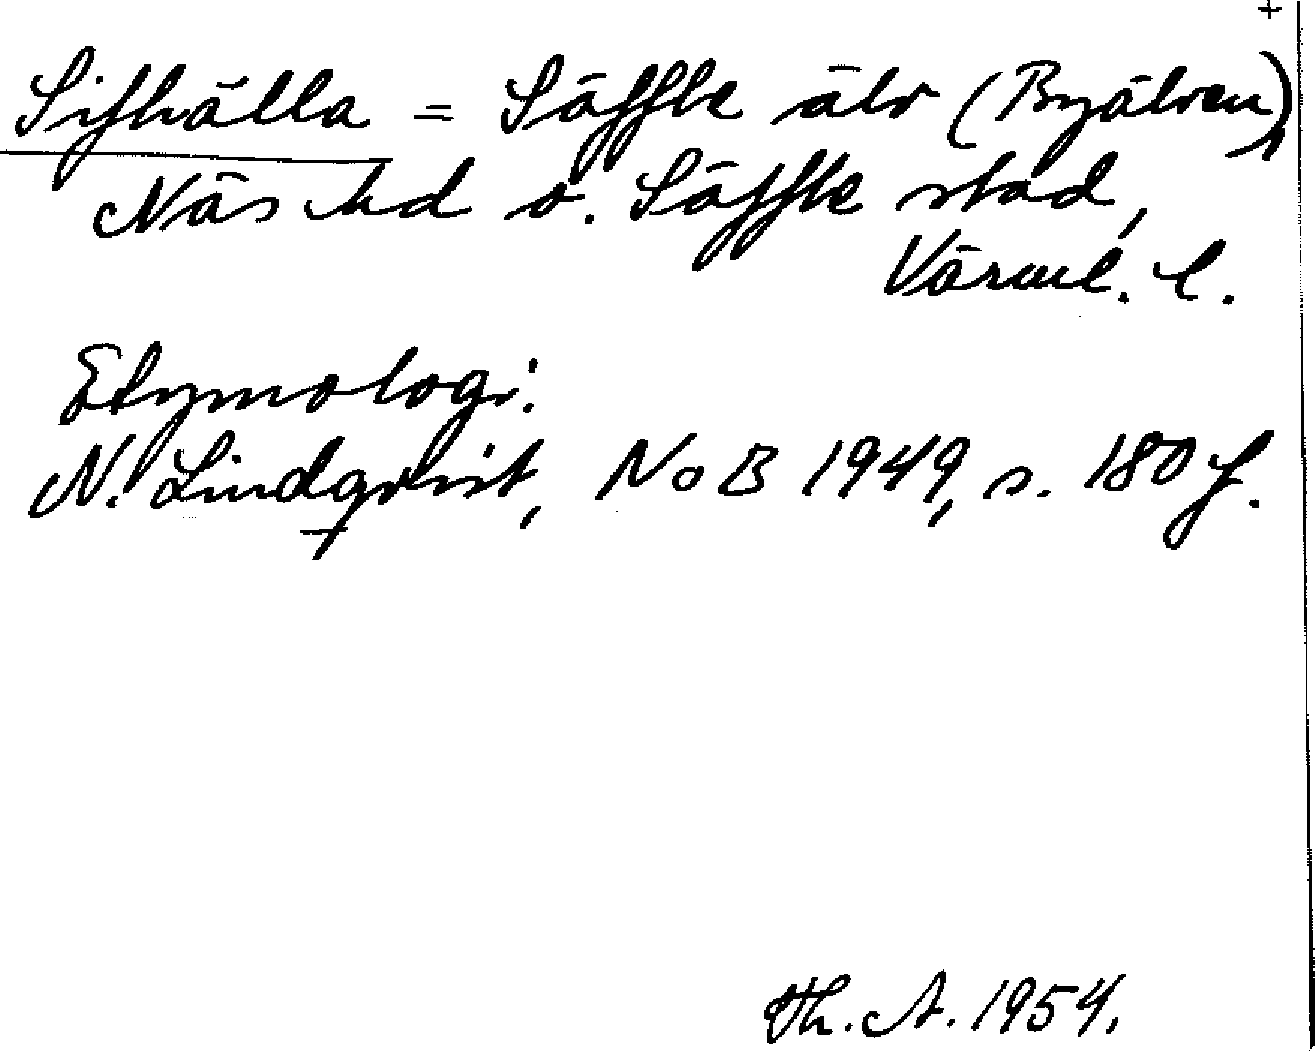 +
Sifhälla = Säffle älv (Byälven),
Näs hd o. Säffle stad,
Värml. l.
Etymologi:
N. Lindqvist, NoB 1949, s. 180 f.
Th. A. 1954.